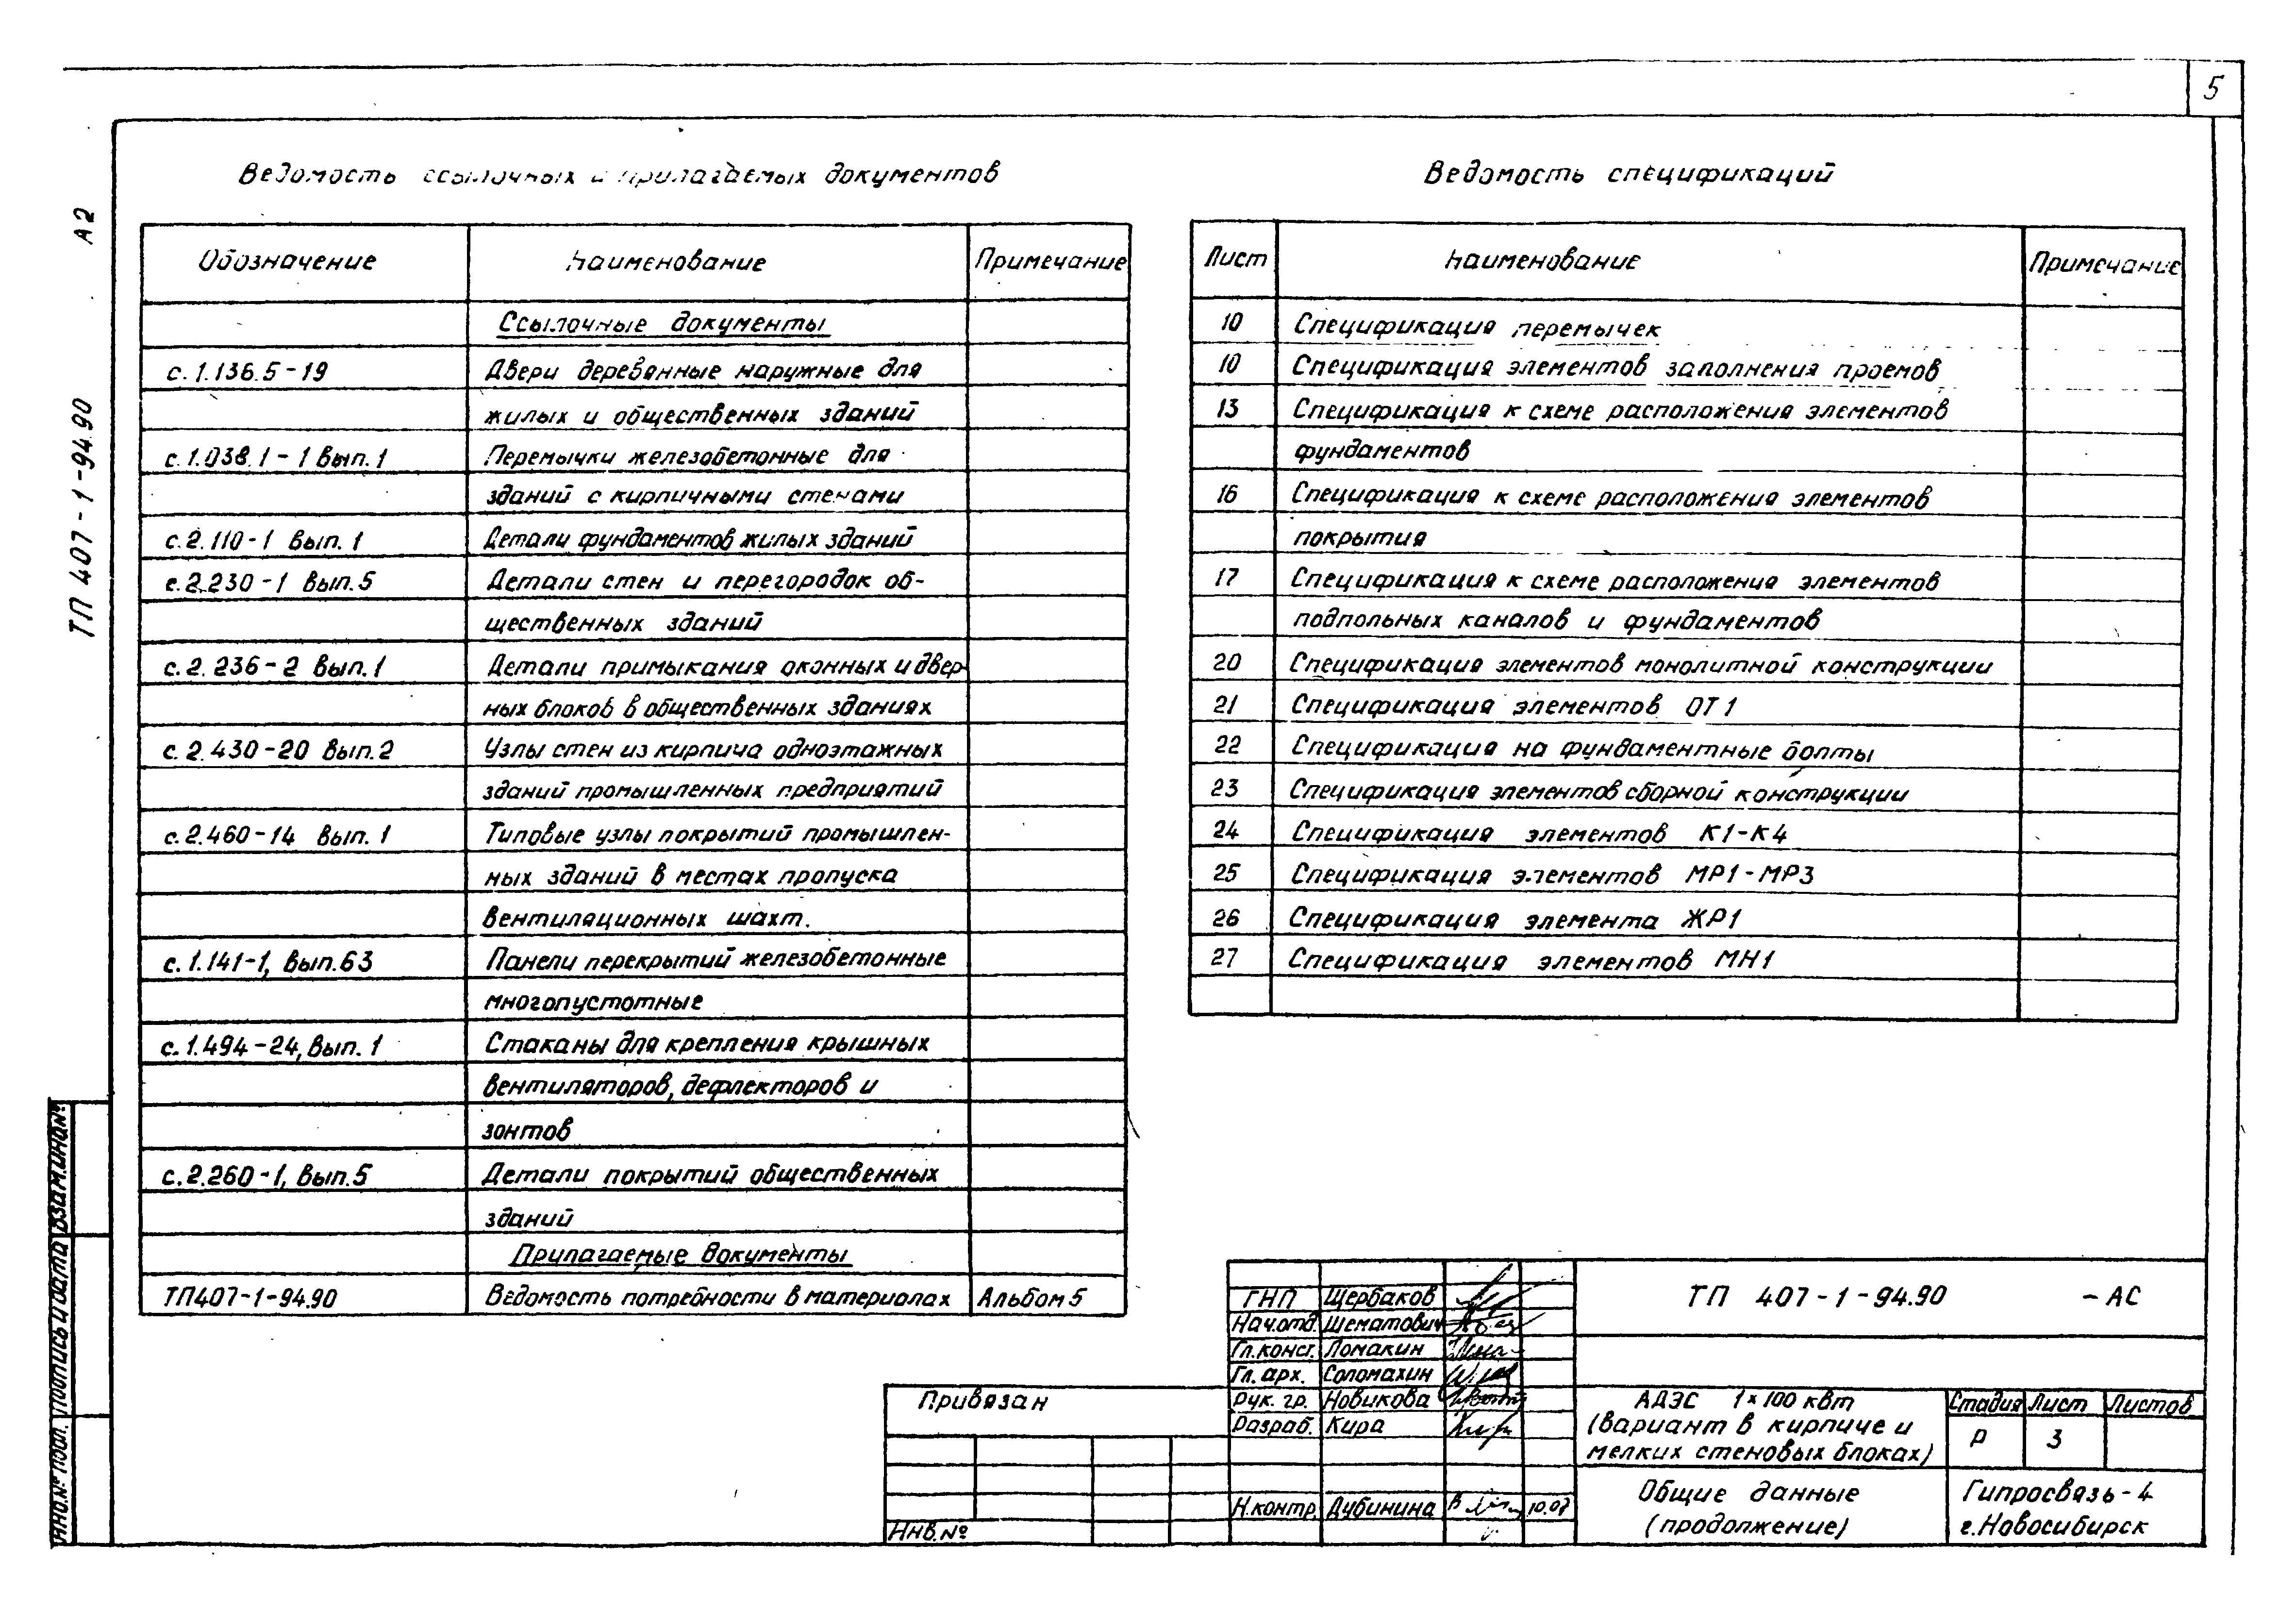 5
А2
ТП 407-1-94.90
Ведомость ссылочных и прилагаемых документов
Обозначение Наименование Примечание
Ссылочные документы
с.1.136.5-19 Двери деревянные наружные для
жилых и общественных зданий
с.1.038.1-1 вып.1 Перемычки железобетонные для
зданий с кирпичными стенами
с.2.110-1 вып.1 Детали фундаментов жилых зданий
с.2.230-1 вып.5 Детали стен и перегородок об-
щественных зданий
с.2.236-2 вып.1 Детали примыкания оконных и двер-
ных блоков в общественных зданиях
с.2.430-20 вып.2 Узлы стен из кирпича одноэтажных
зданий промышленных предприятий
с.2.460-14 вып.1 Типовые узлы покрытий промышлен-
ных зданий в местах пропуска
вентиляционных шахт.
с.1.141-1, вып.63 Панели перекрытий железобетонные
многопустотные
с.1.494-24, вып.1 Стаканы для крепления крышных
вентиляторов, дефлекторов и
зонтов
с.2.260-1, вып.5 Детали покрытий общественных
зданий
Прилагаемые документы
ТП407-1-94.90 Ведомость потребности в материалах Альбом 5
Ведомость спецификаций
Лист Наименование Примечание
10 Спецификация перемычек
10 Спецификация элементов заполнения проемов
13 Спецификация к схеме расположения элементов
фундаментов
16 Спецификация к схеме расположения элементов
покрытия
17 Спецификация к схеме расположения элементов
подпольных каналов и фундаментов
20 Спецификация элементов монолитной конструкции
21 Спецификация элементов ОТ1
22 Спецификация на фундаментные болты
23 Спецификация элементов сборной конструкции
24 Спецификация элементов К1-К4
25 Спецификация элементов МР1-МР3
26 Спецификация элемента ЖР1
27 Спецификация элементов МН1
Взам.инв№
Подпись и дата
Инв.№ подл.
Привязан
Инв.№
ГИП Щербаков
Нач.отд. Шематович
Гл.конст. Ломакин
Гл. арх. Соломахин
Рук. гр. Новикова
Разраб. Кира
Н.контр. Дубинина
ТП 407-1-94.90 -АС
АДЭС 1×100 квт
(вариант в кирпиче и
мелких стеновых блоках)
Стадия Лист Листов
Р 3
Общие данные
(продолжение)
Гипросвязь-4
г.Новосибирск